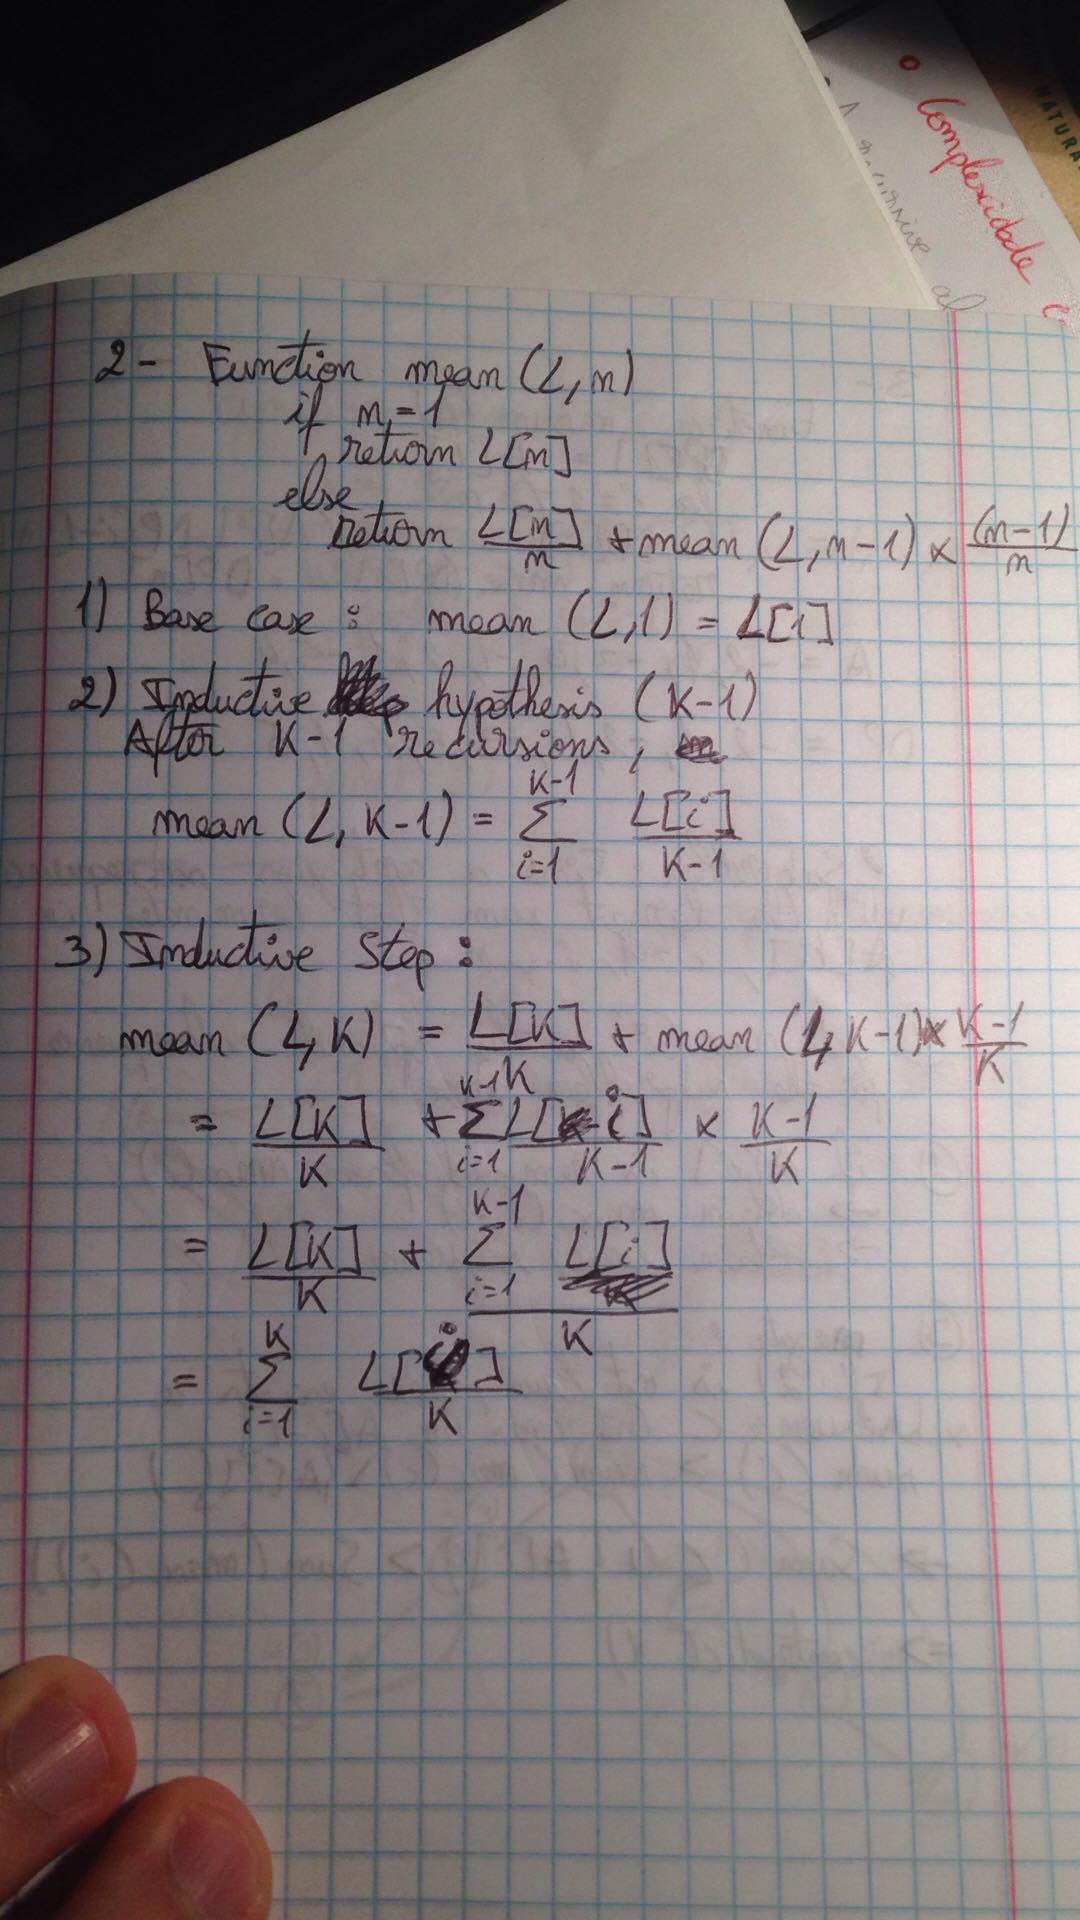 NATURA
• Complexidade
A recursive al
2- Function mean (L, n)
if n = 1
return L[n]
else
return L[n]/n + mean (L, n-1) × (n-1)/n
1) Base case : mean (L,1) = L[1]
2) Inductive hypothesis (K-1)
After K-1 recursions,
mean (L, K-1) = ∑_{i=1}^{K-1} L[i]/(K-1)
3) Inductive Step :
mean (L, K) = L[K]/K + mean (L, K-1) × (K-1)/K
= L[K]/K + ∑_{i=1}^{K-1} L[i]/(K-1) × (K-1)/K
= L[K]/K + (∑_{i=1}^{K-1} L[i])/K
= ∑_{i=1}^{K} L[i]/K